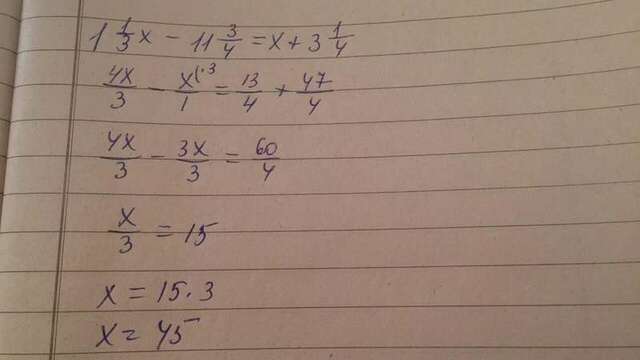 1 1/3 x - 11 3/4 = x + 3 1/4
4x/3 - x(·3/1 = 13/4 + 47/4
4x/3 - 3x/3 = 60/4
x/3 = 15
x = 15·3
x = 45